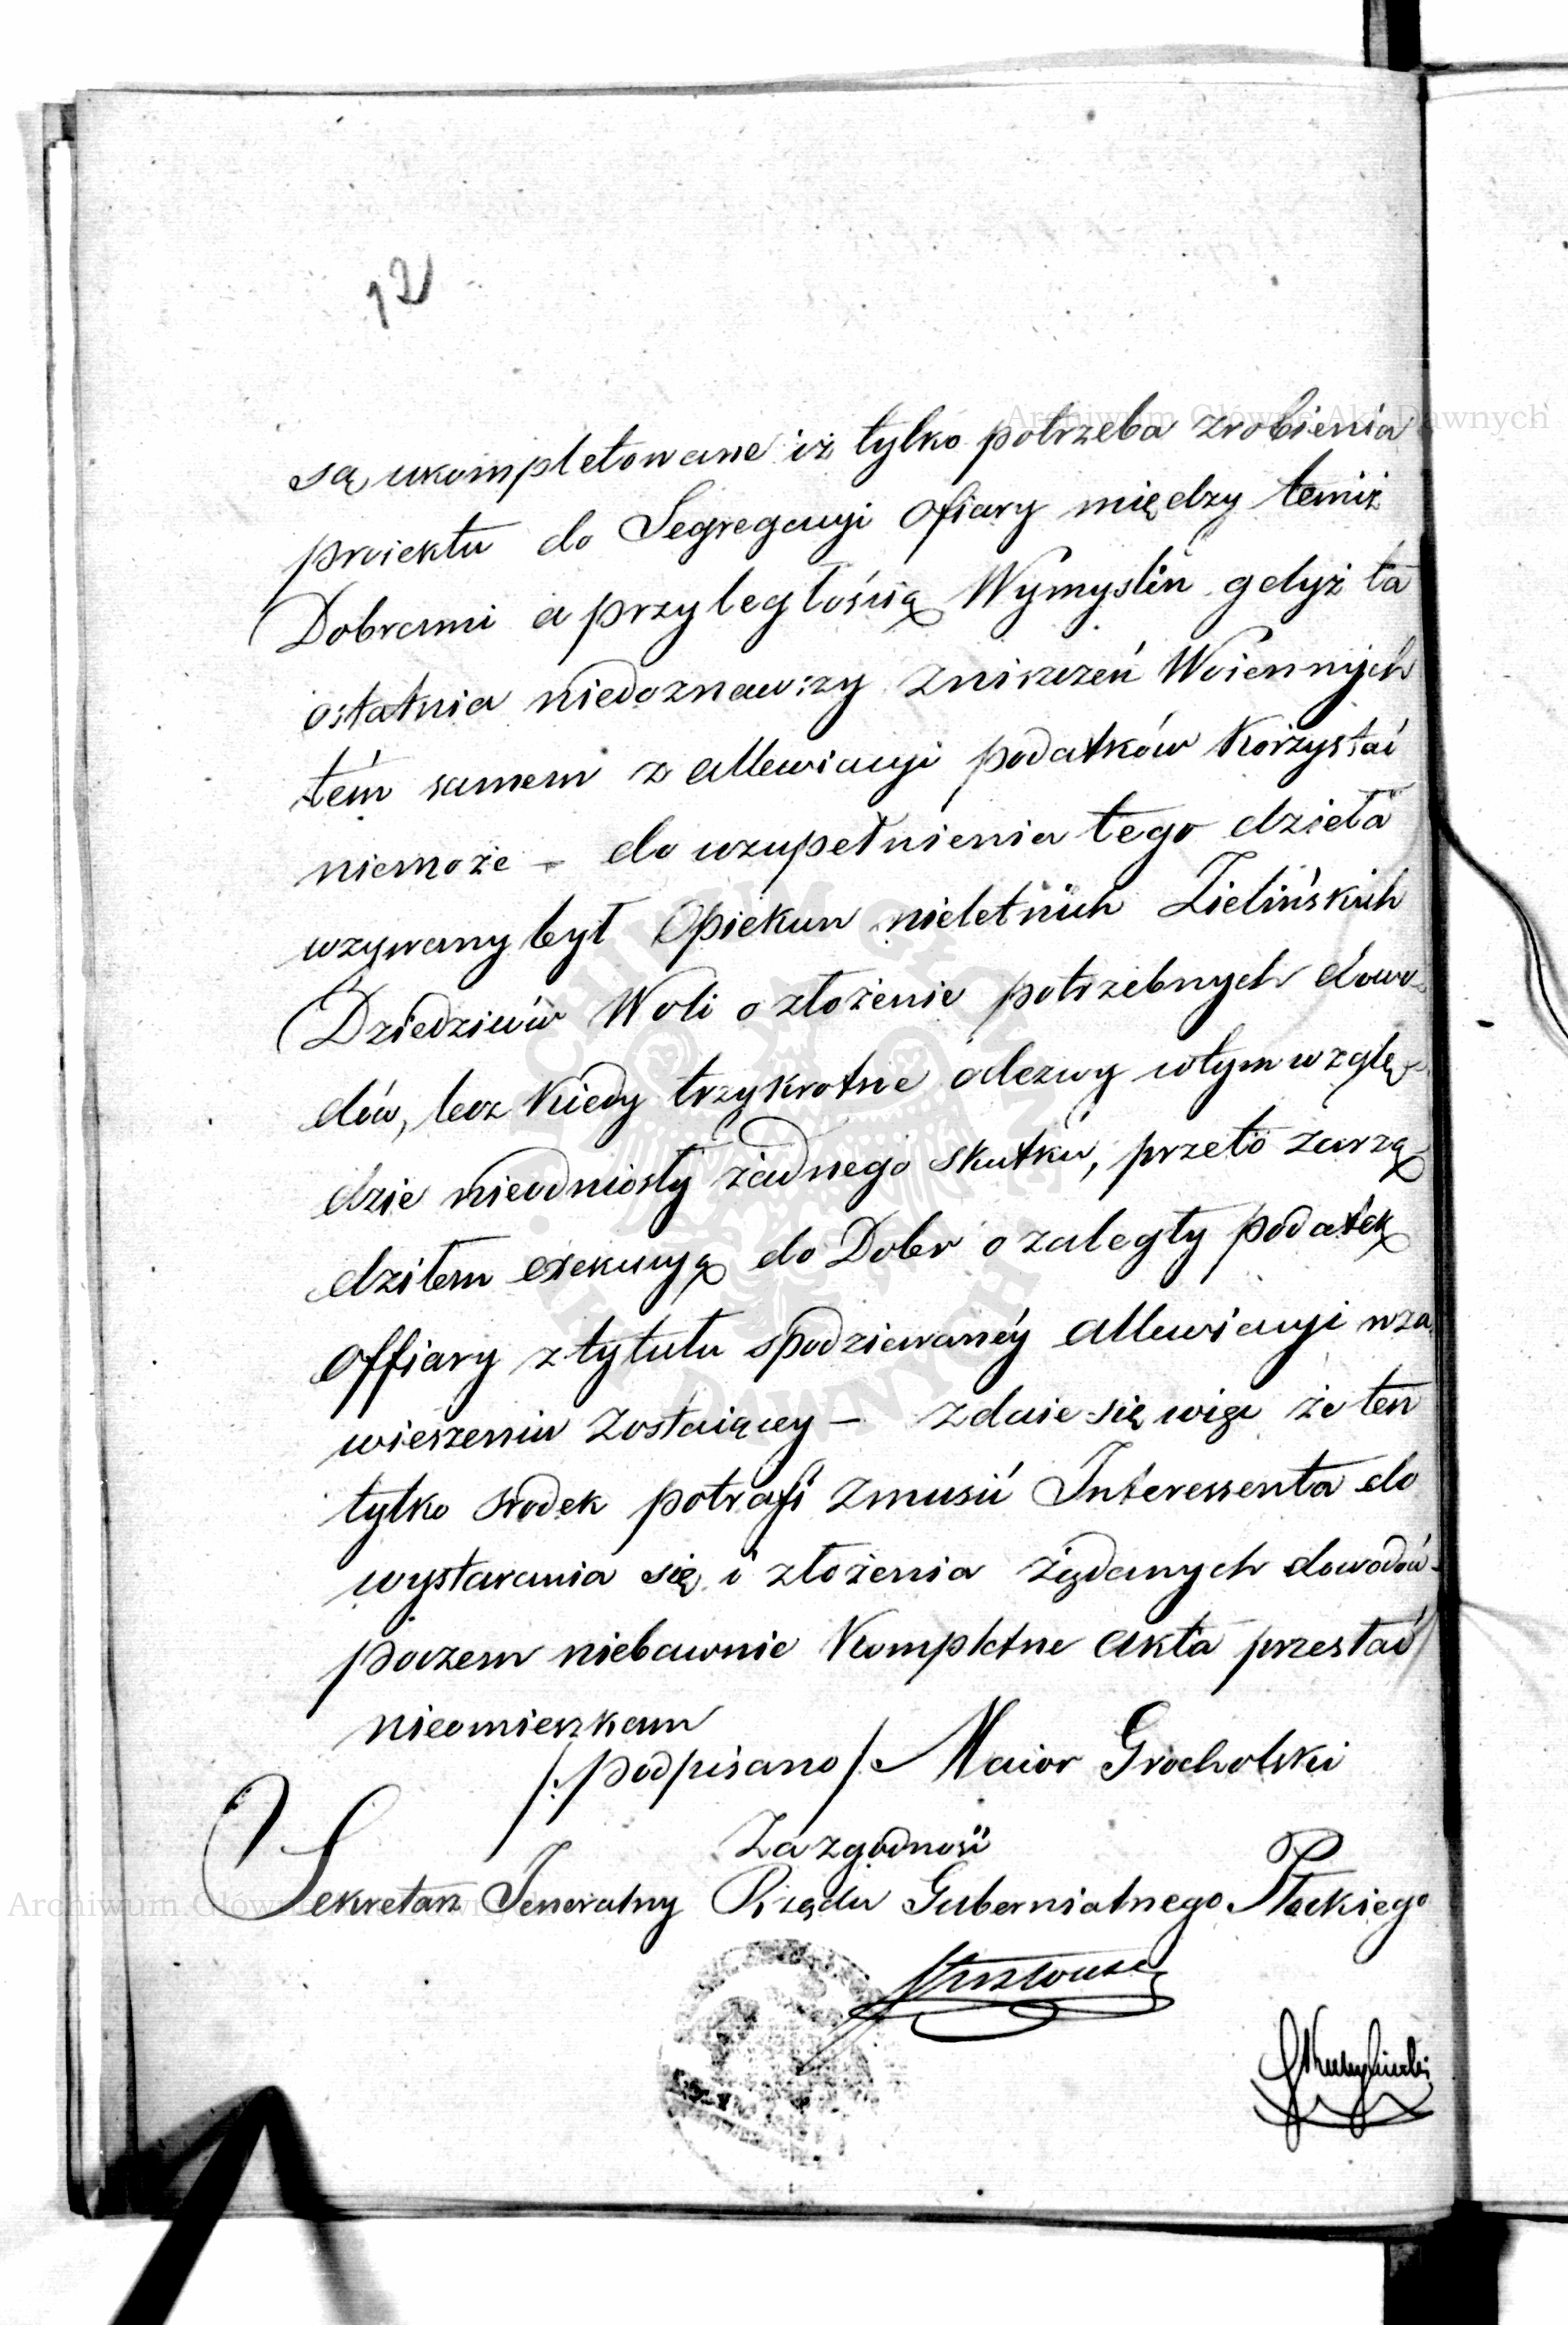 12
są ukompletowane iż tylko potrzeba zrobienia
proiektu do Segregacyi Ofiary między temiż
Dobrami a przyległością Wymyslin gdyż ta
ostatnia niedoznawszy zniszczeń Woiennych
tém samem z allewiacyi podatków Korzystać
niemoże – do uzupełnienia tego dzieła
wzywany był Opiekun nieletnich Zielińskich
Dziedziców Woli o złożenie potrzebnych dowo-
dów, lecz Kiedy trzykrotne odezwy w tym wzglę-
dzie nieodniosły żadnego skutku, przeto zarzą-
dziłem exekucyą do Dóbr o zaległy podatek
Offiary z tytułu spodziewanéy allewiacyi w za-
wieszeniu zostaiący – zdaie się więc że ten
tylko srodek potrafi zmusić Interessenta do
wystarania się i złożenia żądanych dowodów
poczem niebawnie Kompletne akta przesłać
nieomieszkam
/: podpisano /: Maior Grocholski
Za zgodność
Sekretarz Jeneralny Rządu Gubernialnego Płockiego
Archiwum Główne Akt Dawnych